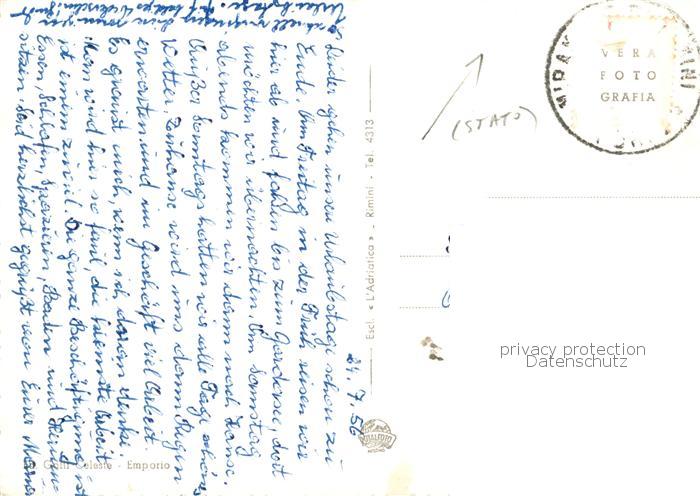 24. 7. 56
Leider gehen unsere Urlaubstage schon zu
Ende. Am Freitag in der Früh reisen wir
hier ab und fahren bis zum Gardasee, dort
möchten wir übernachten. Am Samstag
abends kommen wir dann nach Hause.
Außer Sonntag hatten wir alle Tage schönes
Wetter. Zuhause wird uns dann Regen
erwarten und im Geschäft viel Arbeit.
Es graust mich, wenn ich daran denke.
Man wird hier so faul, die kleinste Arbeit
ist einem zuviel. Die ganze Beschäftigung ist
Essen, Schlafen, Spazieren, Baden und
sitzen. Seid herzlichst gegrüßt von Eurer
Escl. « L'Adriatica » - Rimini - Tel. 4313
(STATO)
VERA
FOTO
GRAFIA
RIMINI
privacy protection
Datenschutz
Celeste - Emporio